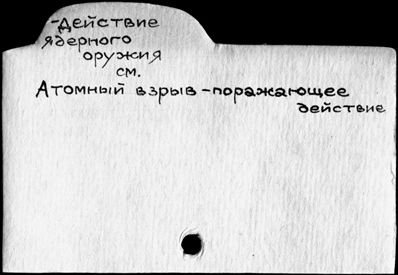 -Действие
ядерного
оружия
см.
Атомный взрыв-поражающее
действие